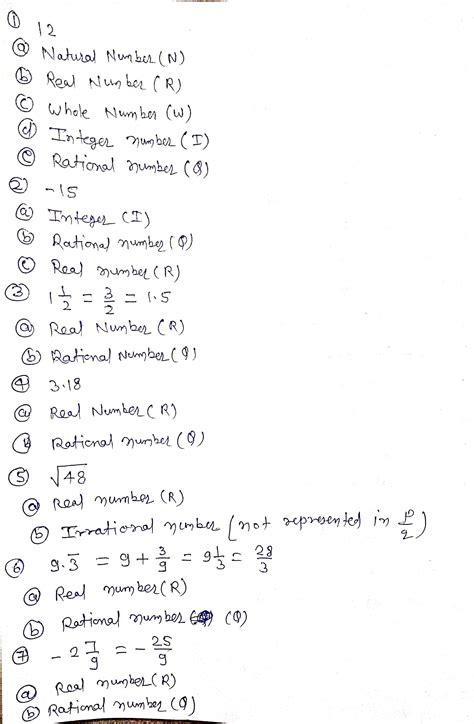 ① 12
ⓐ Natural Number (N)
ⓑ Real Number (R)
ⓒ Whole Number (W)
ⓓ Integer number (I)
ⓔ Rational number (Q)
② -15
ⓐ Integer (I)
ⓑ Rational number (Q)
ⓒ Real number (R)
③ 1 1/2 = 3/2 = 1.5
ⓐ Real Number (R)
ⓑ Rational Number (Q)
④ 3.18
ⓐ Real Number (R)
ⓑ Rational number (Q)
⑤ √48
ⓐ Real number (R)
ⓑ Irrational number (not represented in p/q)
⑥ 9.3̅ = 9 + 3/9 = 9 1/3 = 28/3
ⓐ Real number (R)
ⓑ Rational number (Q)
⑦ -2 7/9 = -25/9
ⓐ Real number (R)
ⓑ Rational number (Q)